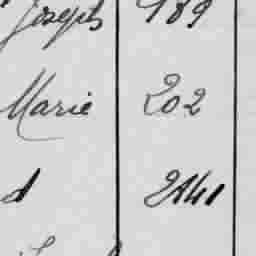 Joseph 189
Marie 202
d 241